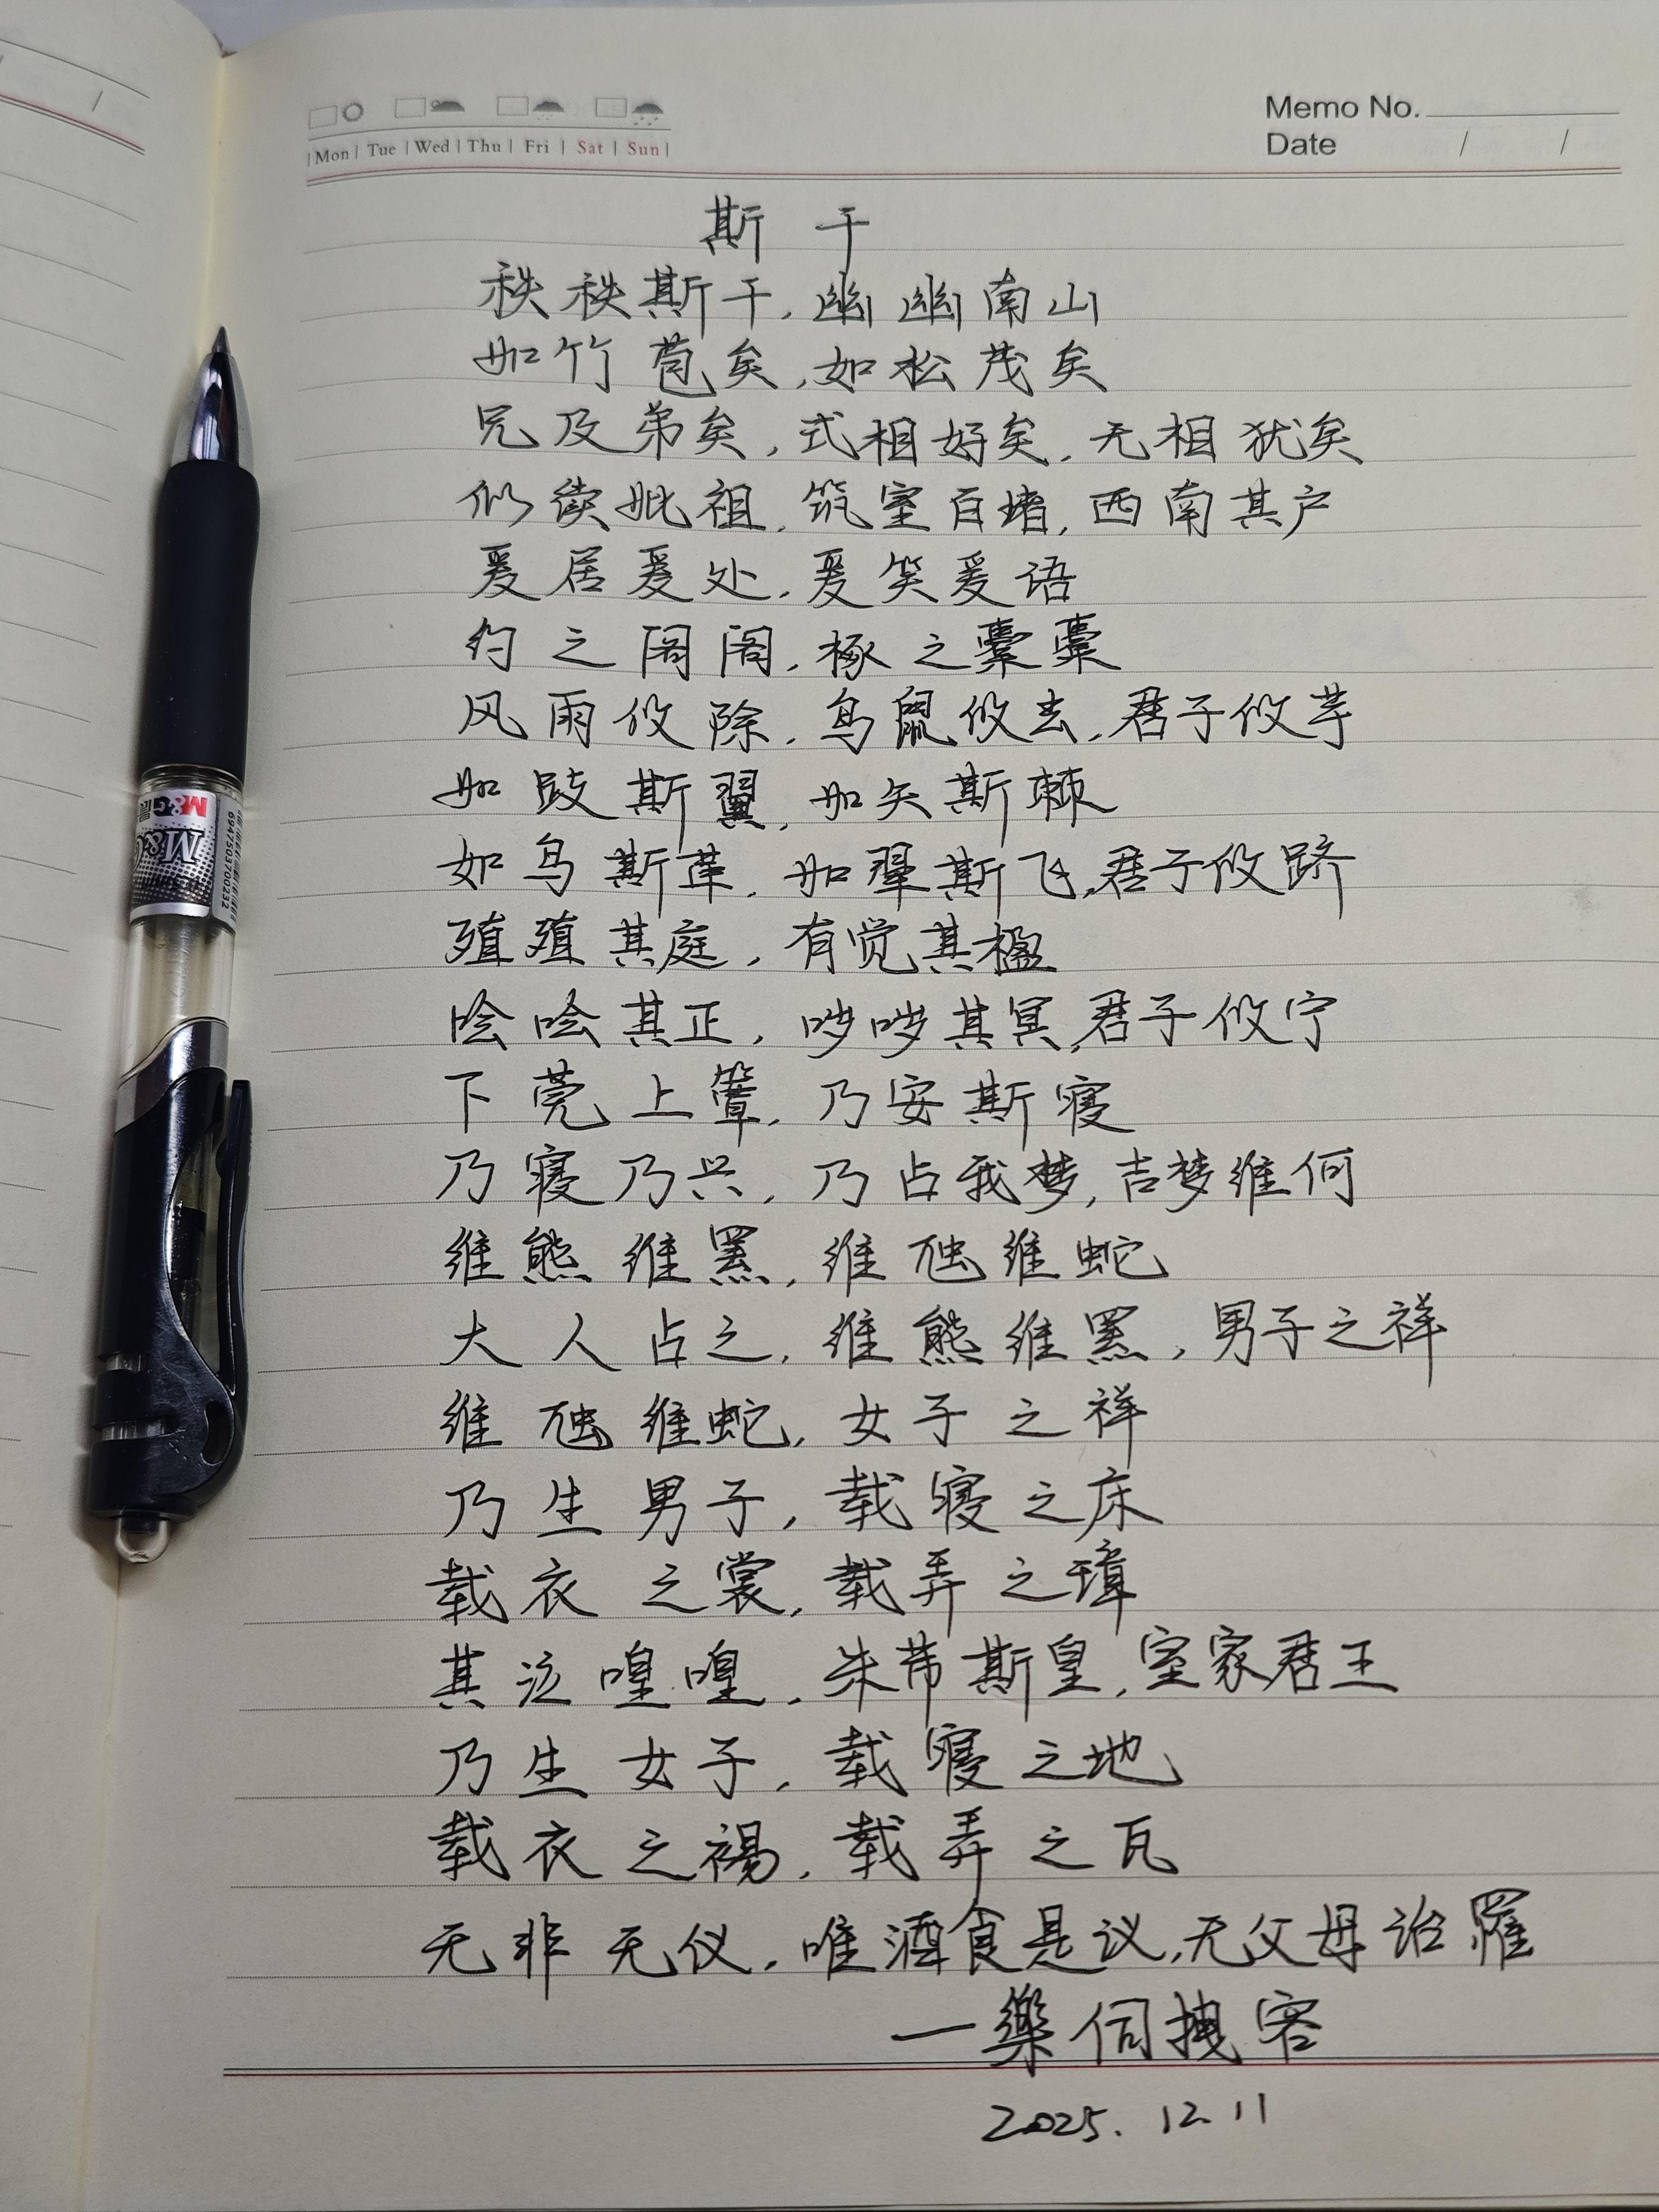 Mon | Tue | Wed | Thu | Fri | Sat | Sun
Memo No.
Date / /
斯干
秩秩斯干,幽幽南山
如竹苞矣,如松茂矣
兄及弟矣,式相好矣,无相犹矣
似续妣祖,筑室百堵,西南其户
爰居爰处,爰笑爰语
约之阁阁,椓之橐橐
风雨攸除,鸟鼠攸去,君子攸芋
如跂斯翼,如矢斯棘
如鸟斯革,如翚斯飞,君子攸跻
殖殖其庭,有觉其楹
哙哙其正,哕哕其冥,君子攸宁
下莞上簟,乃安斯寝
乃寝乃兴,乃占我梦,吉梦维何
维熊维罴,维虺维蛇
大人占之,维熊维罴,男子之祥
维虺维蛇,女子之祥
乃生男子,载寝之床
载衣之裳,载弄之璋
其泣喤喤,朱芾斯皇,室家君王
乃生女子,载寝之地
载衣之裼,载弄之瓦
无非无仪,唯酒食是议,无父母诒罹
一樂伺拽客
2025.12.11
M&G
M&G
6947503700232